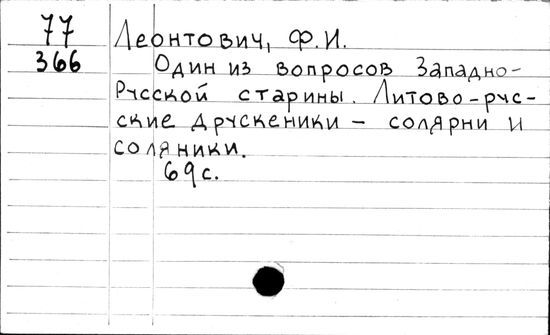 77 Леонтович, Ф.И.
366 Один из вопросов Западно-
Русской старины. Литово-рус-
ские друскеники – солярни и
соляники.
69 с.